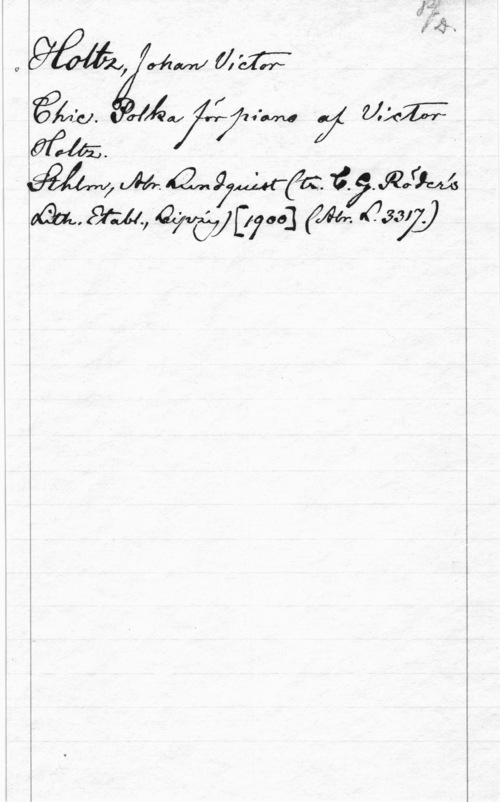 Holtz, Johan Victor
Chic. Polka för piano af Victor
Holtz.
Sthlm, Abr. Lundquist (tr. C. G. Röder's
Lith. Etabl., Leipzig) [1900] (Abr. L. 3317.)